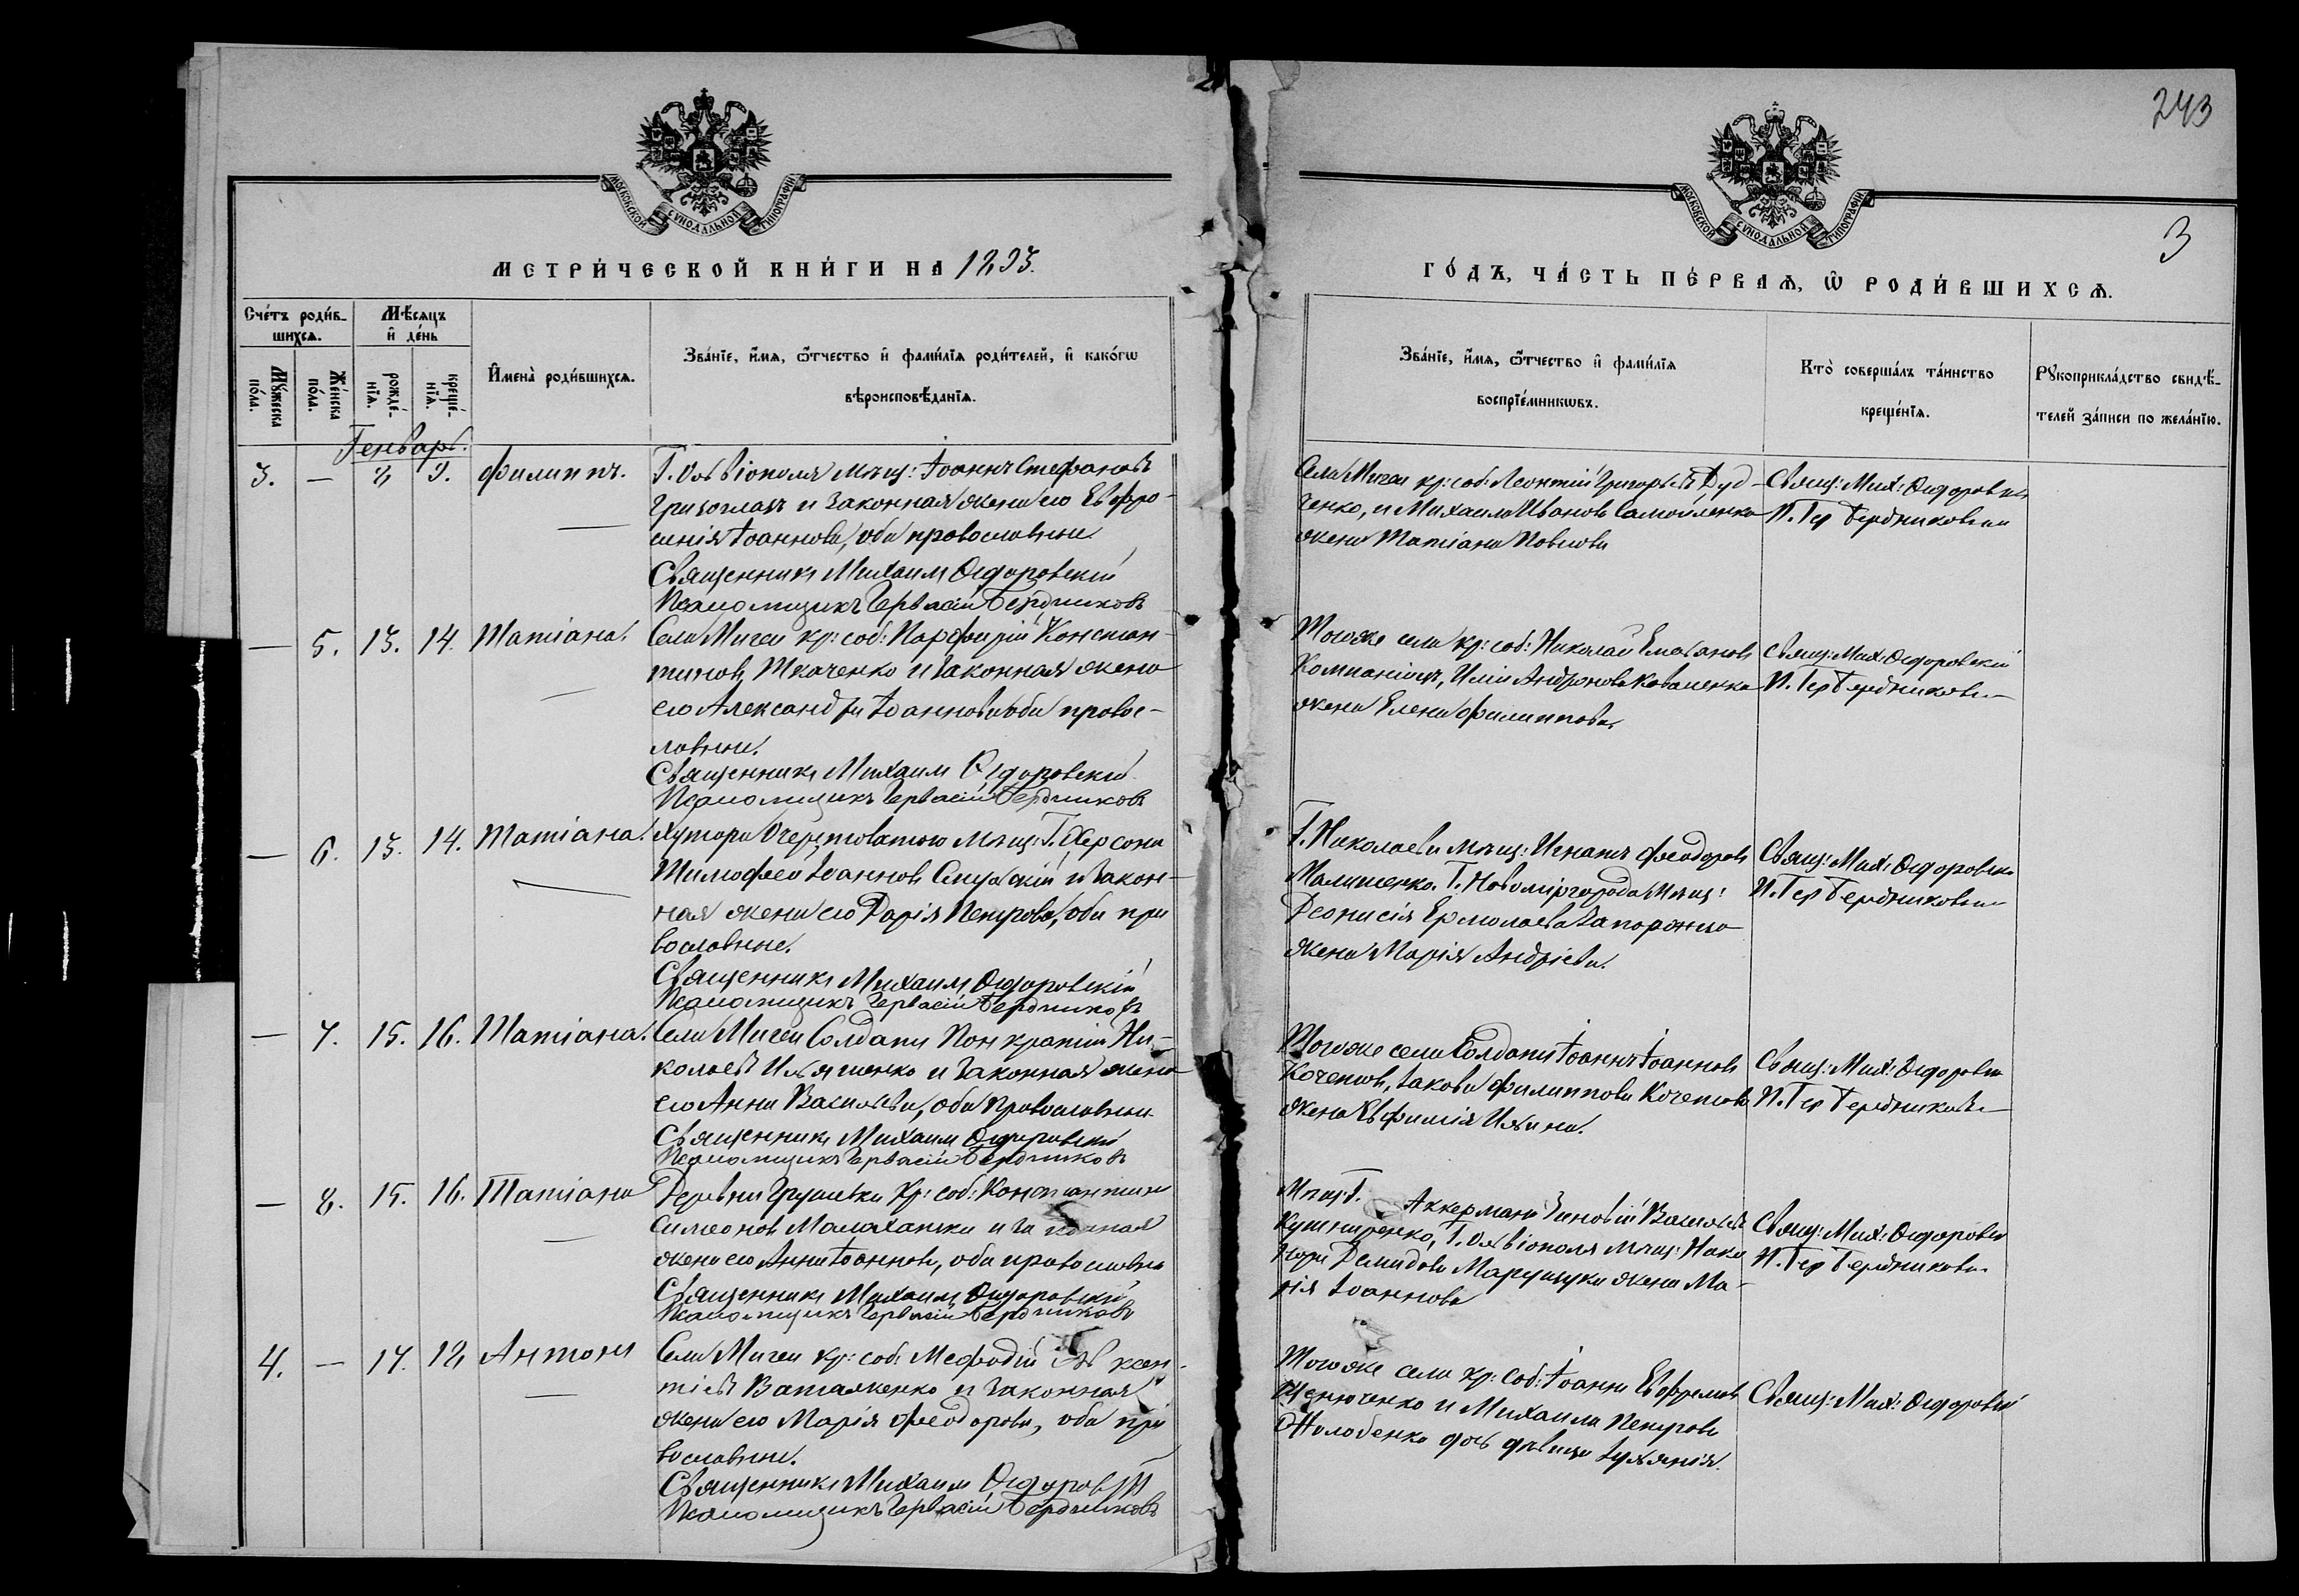 243
МОСКОВСКОЙ СУНОДАЛЬНОЙ ТИПОГРАФІИ
МОСКОВСКОЙ СУНОДАЛЬНОЙ ТИПОГРАФІИ
3
МЕТРИ́ЧЕСКОЙ КНИ́ГИ НА
ГО́ДЪ, ЧА́СТЬ ПЕ́РВАѦ, Ѿ РОДИ́ВШИХСѦ.
Сче́тъ роди́в-
шихсѧ.
Мѣ́сѧцъ
и҆ де́нь
Мꙋ́жеска по́ла.
Же́нска по́ла.
рожде́-
нїѧ.
креще́-
нїѧ.
И҆мена̀ роди́вшихсѧ.
Зва́нїе, и҆́мѧ, ѻ҆́тчество и҆ фами́лїѧ роди́телей, и҆ како́гѡ
вѣроисповѣ́данїѧ.
Зва́нїе, и҆́мѧ, ѻ҆́тчество и҆ фами́лїѧ
воспрїе́мникѡвъ.
Кто̀ соверша́лъ та́инство
креще́нїѧ.
Рꙋкоприкла́дство свидѣ́-
телей за́писи по жела́нїю.
Генварь.
3. — 8 9. Филиппъ.
Г. Ольвіополя мѣщ: Іоаннъ Стефановъ
и законная жена его Евфро-
синія Іоаннова, оба православные.
Священникъ Михаилъ Сидоровскій
Псаломщикъ Гервасій Бердниковъ
Села Мигеи кр: соб: Леонтій Григорьевъ Дуд-
ченко, и Михаила Иванова Самойленка
жена Татіана Павлова
Свящ: Мих: Сидоровск.
П. Гер Бердниковъ
— 5. 13. 14. Татіана.
Села Мигеи кр: соб: Парфирій Констан-
тиновъ Ткаченко и законная жена
его Александра Іоаннова оба правос-
лавные.
Священникъ Михаилъ Сидоровскій
Псаломщикъ Гервасій Бердниковъ
Тогоже села кр: соб: Николай
Компаніецъ, Иліи Андронова Коваленка
жена Елена Филиппова.
Свящ: Мих: Сидоровскій
П. Гер Бердниковъ
— 6. 13. 14. Татіана.
Хутора Очеретоватого мѣщ: Г. Херсона
Тимофей Іоанновъ и закон-
ная жена его Дарія Петрова, оба пра
вославные.
Священникъ Михаилъ Сидоровскій
Псаломщикъ Гервасій Бердниковъ
Г. Николаева мѣщ: Игнатъ Феодоровъ
Малишенко. Г. Новомиргорода мѣщ:
Деонисія Ермолаева Запорожца
жена Марія Андріева.
Свящ: Мих: Сидоровск.
П. Гер Бердниковъ
— 7. 15. 16. Татіана.
Села Мигеи Солдатъ Понкратій Ни-
колаевъ Ильяшенко и законная жена
его Анна Васильева, оба православные.
Священникъ Михаилъ Сидоровскій
Псаломщикъ Гервасій Бердниковъ
Тогоже села Солдатъ Іоаннъ Іоанновъ
Кочетовъ, Іакова Филиппова Кочетова
жена Евфимія Ильина.
Свящ: Мих: Сидоровск
П. Гер Бердниковъ
— 8. 15. 16. Татіана
Деревни Грушевки кр: соб: Константинъ
Симеоновъ и законная
жена его Анна Іоаннова, оба православны
Священникъ Михаилъ Сидоровскій
Псаломщикъ Гервасій Бердниковъ
Мѣщ: Г. Аккермана Зиновій Васильевъ
Кушниренко, Г. Ольвіополя мѣщ: Ника
нора Демидова Марущука жена Ма-
рія Іоаннова
Свящ: Мих: Сидоровск
П. Гер Бердниковъ
4. — 17. 18 Антонъ
Села Мигеи кр: соб: Мефодій Авксен-
тіевъ Ватаженко и законная
жена его Марія Феодорова, оба пра
вославные.
Священникъ Михаилъ Сидоровскій
Псаломщикъ Гервасій Бердниковъ
Тогоже села кр: соб: Іоаннъ Евфремовъ
и Михаила Петрова
Жолобенка дочь дѣвица Іуліанія.
Свящ: Мих: Сидоровскій